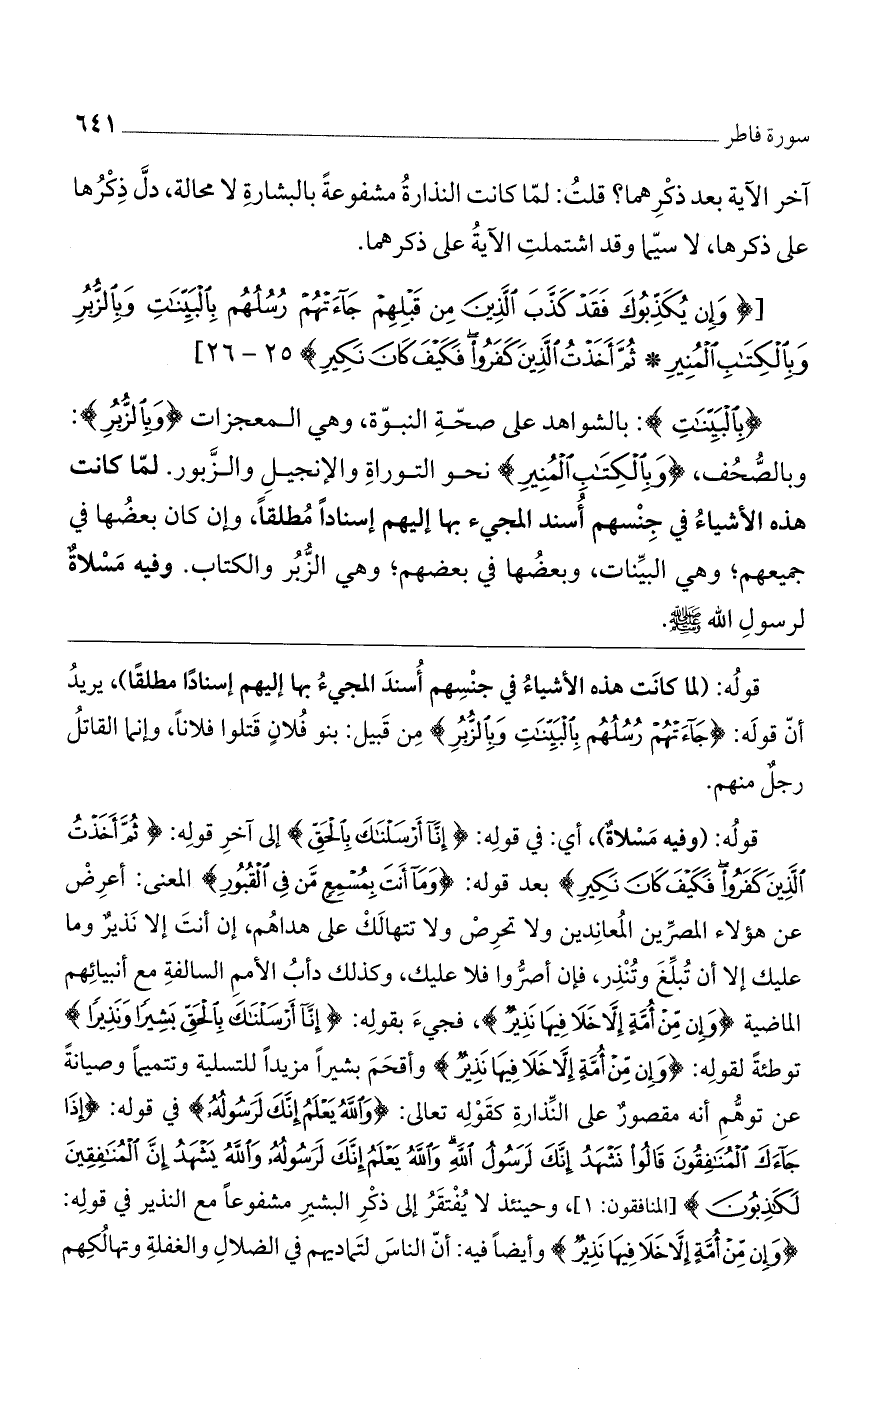 سورة فاطر ٦٤١
آخر الآية بعد ذكْرِهما؟ قلتُ: لمّا كانت النذارةُ مشفوعةً بالبشارةِ لا محالة، دلَّ ذِكْرُها
على ذكرها، لا سيّما وقد اشتملتِ الآيةُ على ذكرهما.
[﴿وَإِن يُكَذِّبُوكَ فَقَدْ كَذَّبَ ٱلَّذِينَ مِن قَبْلِهِمْ جَآءَتْهُمْ رُسُلُهُم بِٱلْبَيِّنَٰتِ وَبِٱلزُّبُرِ
وَبِٱلْكِتَٰبِ ٱلْمُنِيرِ * ثُمَّ أَخَذْتُ ٱلَّذِينَ كَفَرُواْ ۖ فَكَيْفَ كَانَ نَكِيرِ﴾ ٢٥ - ٢٦]
﴿بِٱلْبَيِّنَٰتِ﴾: بالشواهد على صحّةِ النبوّة، وهي المعجزات ﴿وَبِٱلزُّبُرِ﴾:
وبالصُّحُف، ﴿وَبِٱلْكِتَٰبِ ٱلْمُنِيرِ﴾ نحو التوراةِ والإنجيلِ والزَّبور. لمّا كانت
هذه الأشياءُ في جِنْسهم أُسند المجيء بها إليهم إسناداً مُطلقاً، وإن كان بعضُها في
جميعهم؛ وهي البيِّنات، وبعضُها في بعضهم؛ وهي الزُّبُر والكتاب. وفيه مَسْلاةٌ
لرسولِ الله ﷺ.
قولُه: (لما كانَت هذه الأشياءُ في جنْسِهم أُسندَ المجيءُ بها إليهم إسنادًا مطلقًا)، يريدُ
أنّ قولَه: ﴿جَآءَتْهُمْ رُسُلُهُم بِٱلْبَيِّنَٰتِ وَبِٱلزُّبُرِ﴾ مِن قَبيل: بنو فُلانٍ قَتلوا فلاناً، وإنما القاتلُ
رجلٌ منهم.
قولُه: (وفيه مَسْلاةٌ)، أي: في قولِه: ﴿إِنَّآ أَرْسَلْنَٰكَ بِٱلْحَقِّ﴾ إلى آخرِ قولِه: ﴿ثُمَّ أَخَذْتُ
ٱلَّذِينَ كَفَرُواْ ۖ فَكَيْفَ كَانَ نَكِيرِ﴾ بعد قوله: ﴿وَمَآ أَنتَ بِمُسْمِعٍ مَّن فِى ٱلْقُبُورِ﴾ المعنى: أعرِضْ
عن هؤلاء المصرِّين المُعاندين ولا تحرِصْ ولا تتهالَكْ على هداهُم، إن أنتَ إلا نَذيرٌ وما
عليك إلا أن تُبلِّغَ وتُنْذِر، فإن أصرُّوا فلا عليك، وكذلك دأبُ الأممِ السالفةِ مع أنبيائِهم
الماضية ﴿وَإِن مِّنْ أُمَّةٍ إِلَّا خَلَا فِيهَا نَذِيرٌ﴾، فجيءَ بقولِه: ﴿إِنَّآ أَرْسَلْنَٰكَ بِٱلْحَقِّ بَشِيرًا وَنَذِيرًا﴾
توطئةً لقولِه: ﴿وَإِن مِّنْ أُمَّةٍ إِلَّا خَلَا فِيهَا نَذِيرٌ﴾ وأقحَمَ بشيراً مزيداً للتسلية وتتميماً وصيانةً
عن توهُّمِ أنه مقصورٌ على النِّذارةِ كقَوْلِه تعالى: ﴿وَٱللَّهُ يَعْلَمُ إِنَّكَ لَرَسُولُهُۥ﴾ في قوله: ﴿إِذَا
جَآءَكَ ٱلْمُنَٰفِقُونَ قَالُواْ نَشْهَدُ إِنَّكَ لَرَسُولُ ٱللَّهِ ۗ وَٱللَّهُ يَعْلَمُ إِنَّكَ لَرَسُولُهُۥ وَٱللَّهُ يَشْهَدُ إِنَّ ٱلْمُنَٰفِقِينَ
لَكَٰذِبُونَ﴾ [المنافقون: ١]، وحينئذ لا يُفْتقَرُ إلى ذكْرِ البشيرِ مشفوعاً مع النذير في قولِه:
﴿وَإِن مِّنْ أُمَّةٍ إِلَّا خَلَا فِيهَا نَذِيرٌ﴾ وأيضاً فيه: أنّ الناسَ لتماديهم في الضلالِ والغفلةِ وتهالُكِهم